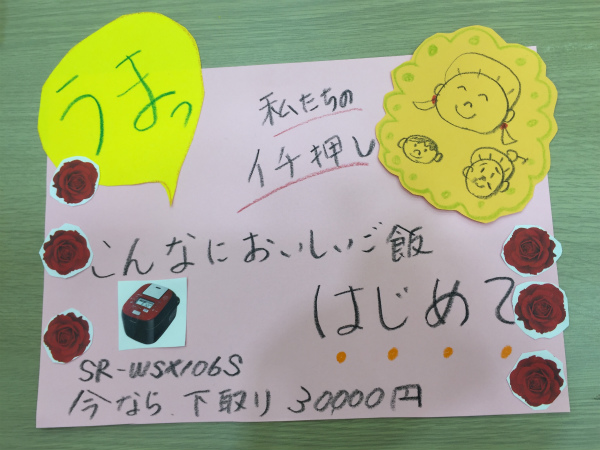 うまっ
私たちの
イチ押し
こんなにおいしいご飯
はじめて
SR-WSX106S
今なら、下取り 30000円